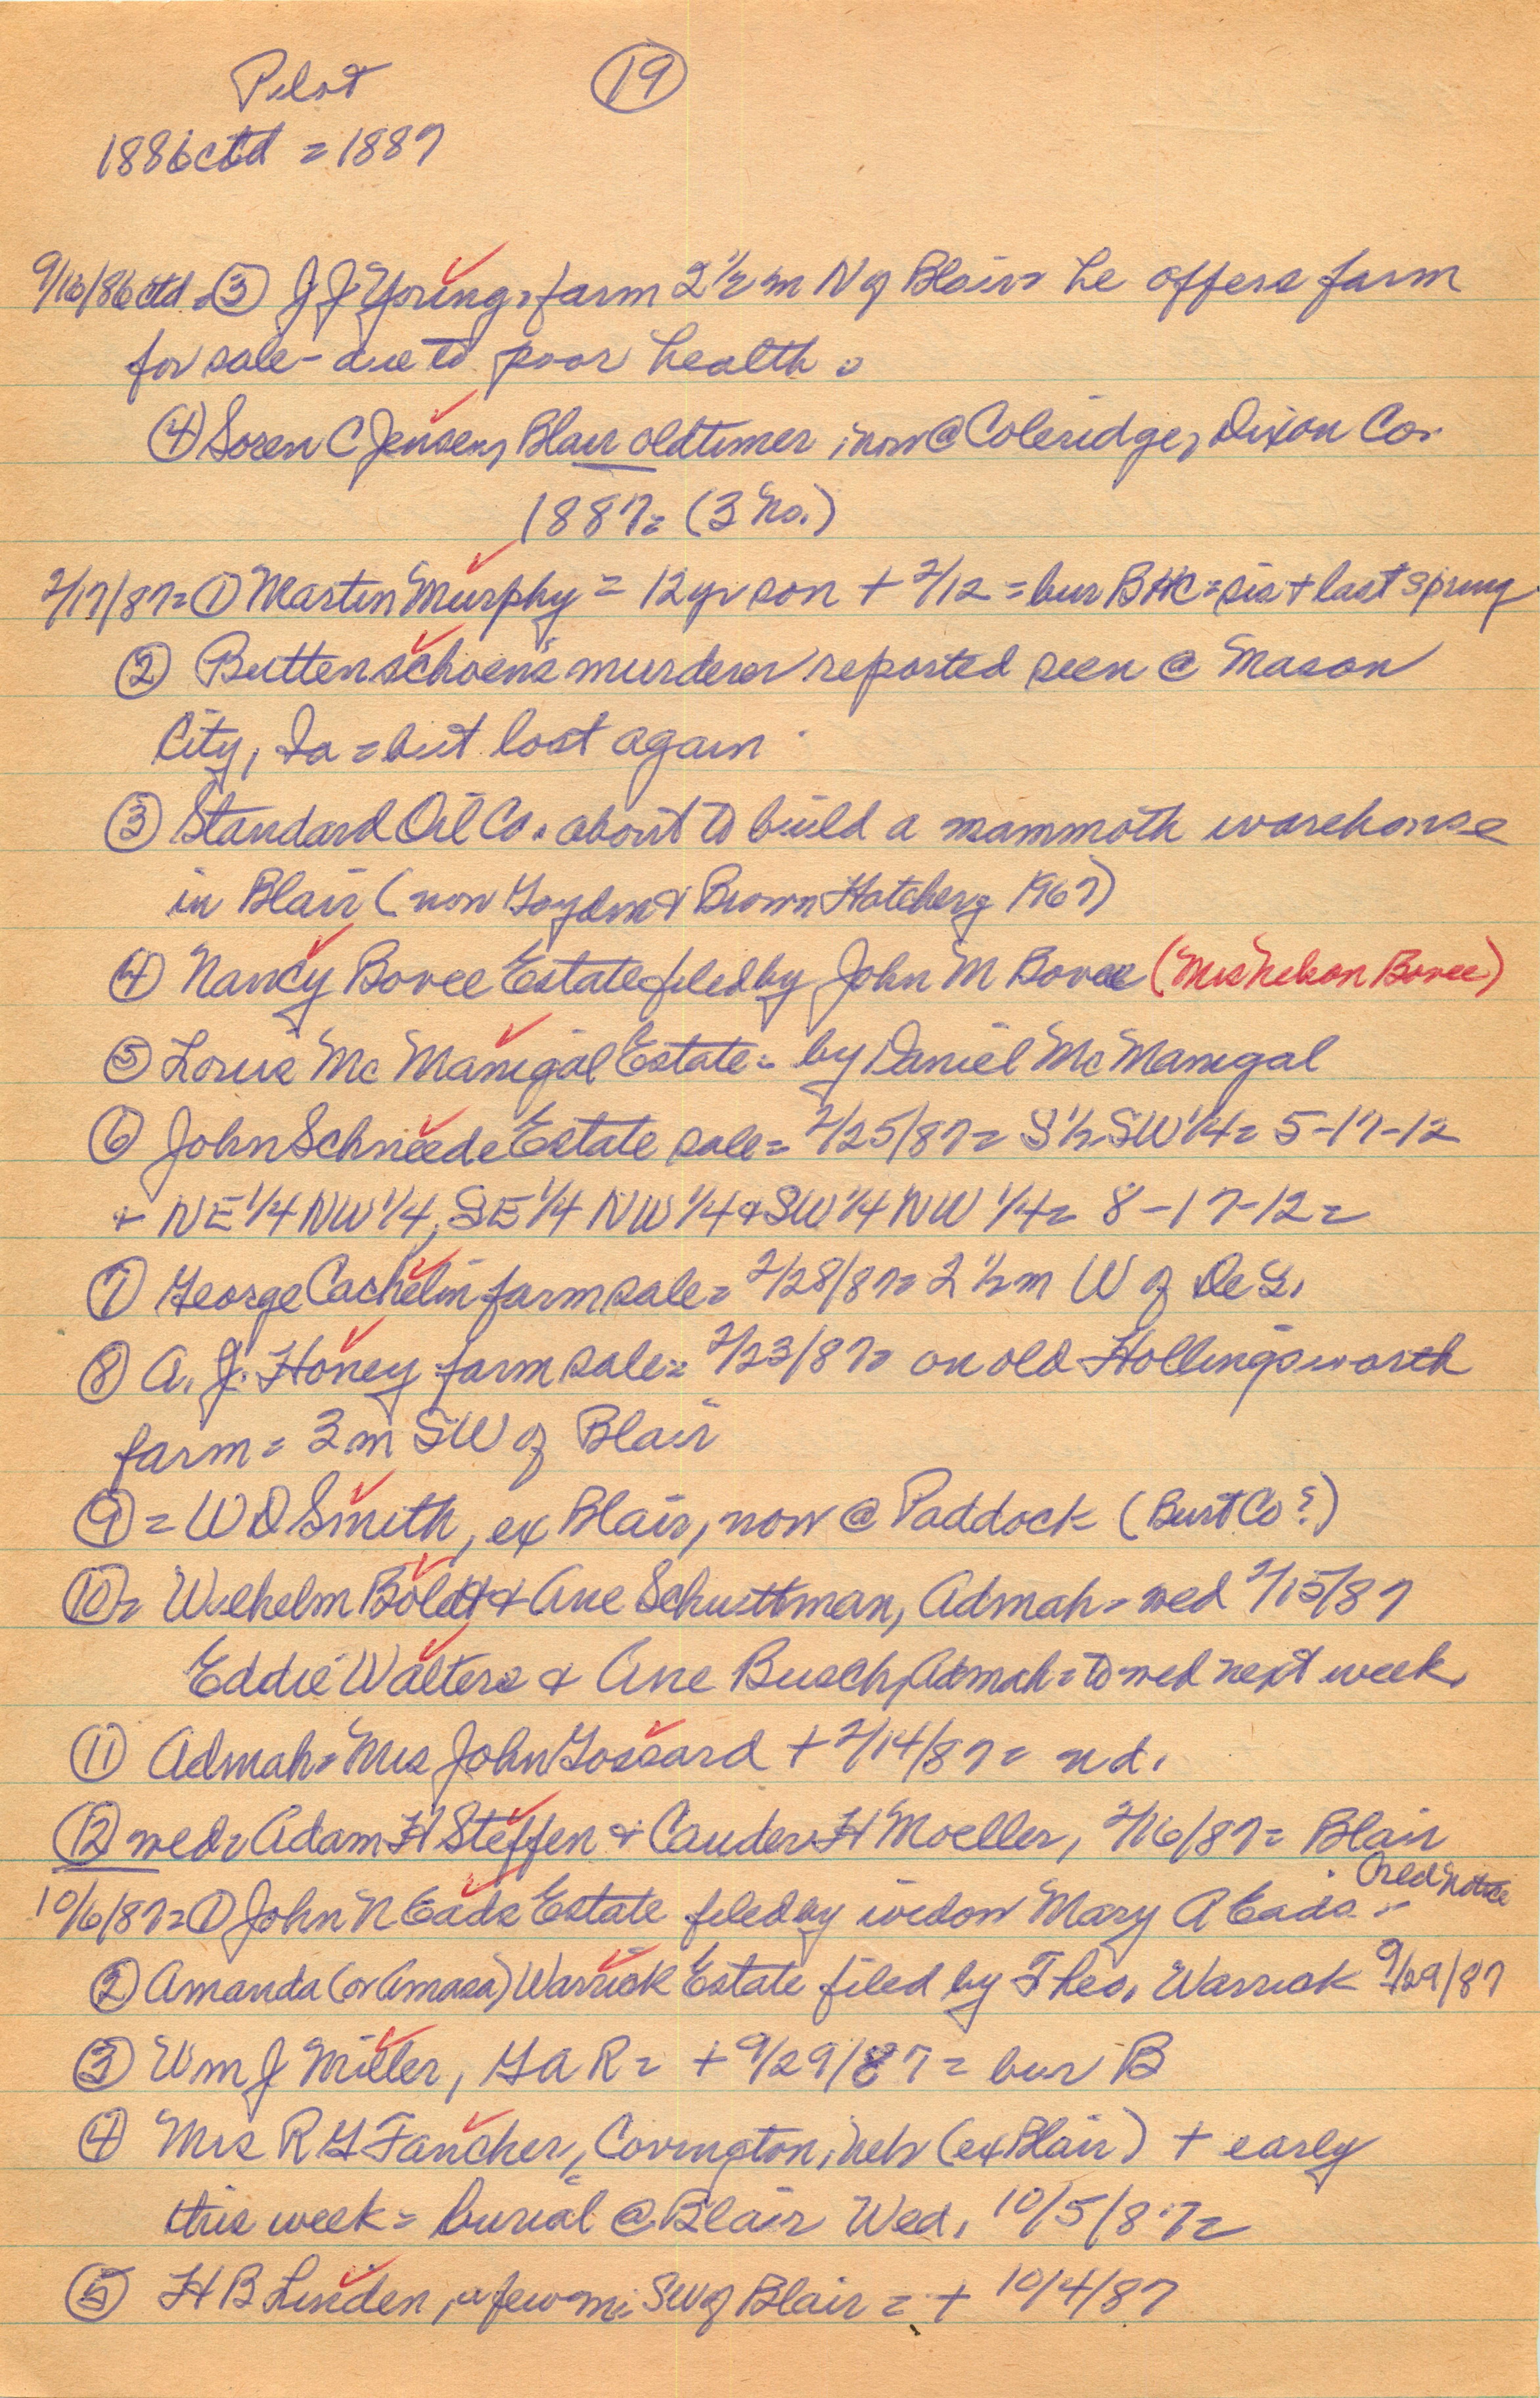 Pilot (19)
1886 ctd = 1887
9/16/86 ctd = (3) J J Young, farm 2 1/2 m N of Blair he offers farm
for sale - due to poor health.
(4) Soren C Jensen, Blair oldtimer, now @ Coleridge, Dixon Co.
1887 = (3 No.)
2/17/87 = (1) Martin Murphy = 12 yr son + 2/12 = bur BHC = sis + last spring
(2) Buttenschoen's murderer reported seen @ Mason
City, Ia = but lost again
(3) Standard Oil Co. about to build a mammoth warehouse
in Blair (now & Brown Hatchery 1967)
(4) Nancy Bovee Estate filed by John M Bovee (Mrs Nelson Bovee)
(5) Louis Mc Manigal Estate = by Daniel Mc Manigal
(6) John Schneede Estate sale = 2/25/87 = S 1/2 SW 1/4 = 5-17-12
+ NE 1/4 NW 1/4, SE 1/4 NW 1/4 & SW 1/4 NW 1/4 = 8-17-12 =
(7) George Cachelin farm sale = 2/28/87 = 2 1/2 m W of De S.
(8) A. J. Honey farm sale = 2/23/87 = on old Hollingsworth
farm = 3 m SW of Blair
(9) = W D Smith, ex Blair, now @ Paddock (Burt Co?)
(10) = Wilhelm Boldt & Ane Schuttman, Admah = wed 2/15/87
Eddie Walters & Ane Busch, Admah = to wed next week.
(11) Admah = Mrs John Gossard + 2/14/87 = n d.
(12) wed = Adam H Steffen & H Moeller, 2/16/87 = Blair
10/6/87 = (1) John N Eads Estate filed by widow Mary A Eads = Cred Notice
(2) Amanda (or Amasa) Warrick Estate filed by Theo. Warrick 9/29/87
(3) Wm J Miller, G A R = + 9/29/87 = bur B
(4) Mrs R G Fancher, Covington, Neb (ex Blair) + early
this week = burial @ Blair Wed, 10/5/87 =
(5) H B Linden, a few mi SW of Blair = + 10/4/87